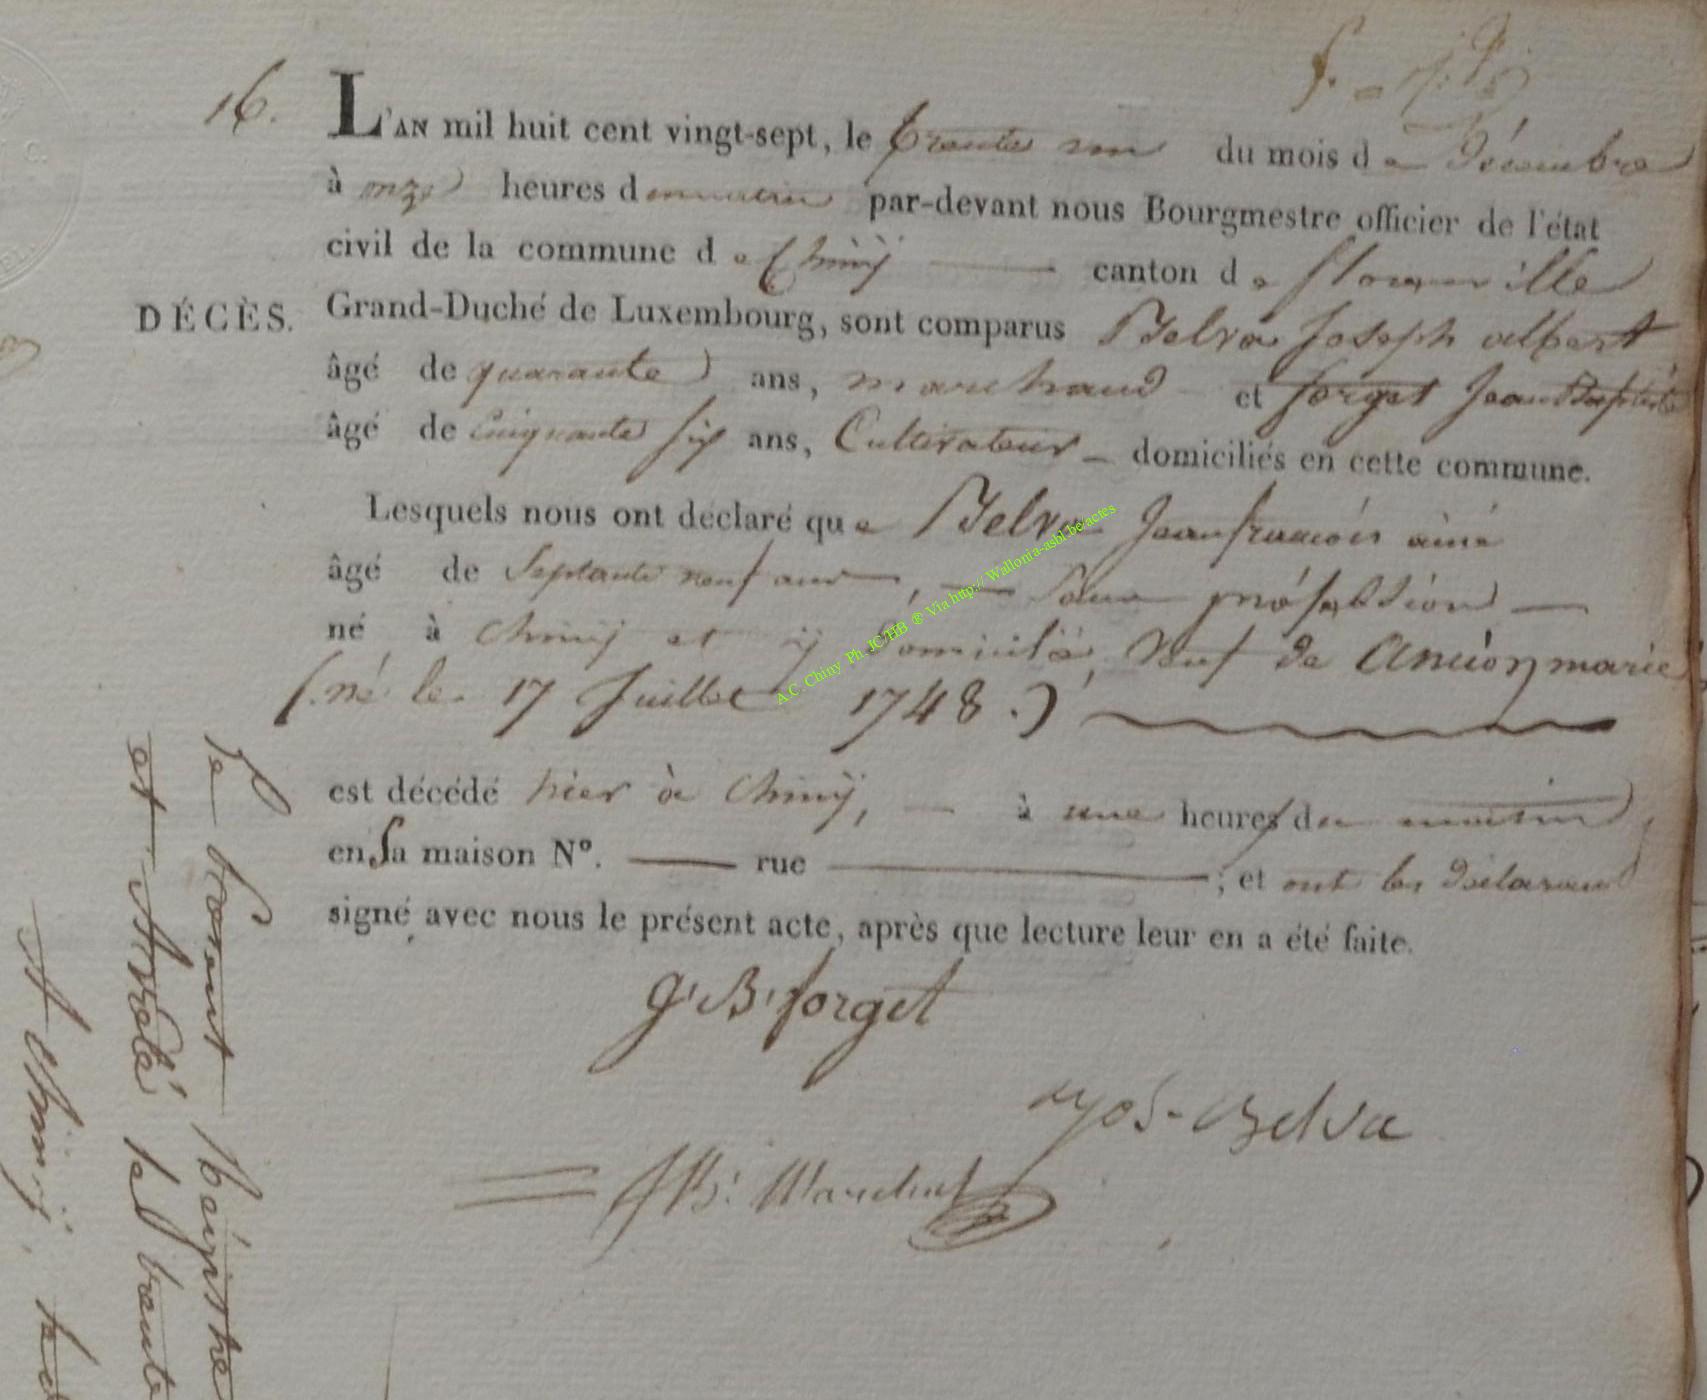 16.
L'AN mil huit cent vingt-sept, le trente un du mois de Décembre
à onze heures du matin par-devant nous Bourgmestre officier de l'état
civil de la commune de Chiny canton de florenville
DÉCÈS.
Grand-Duché de Luxembourg, sont comparus Belva Joseph albert
âgé de quarante ans, marchand et forget Jean Baptiste
âgé de Cinquante six ans, Cultivateur domiciliés en cette commune.
Lesquels nous ont déclaré que Belva Jean françois ainé
âgé de Septante neuf ans, sans proféssion
né à Chiny et y domicilié, veuf de Ancion marie
(né le 17 Juillet 1748.)
est décédé hier à Chiny, à une heures du matin
en sa maison N°. rue ; et ont les déclarans
signé avec nous le présent acte, après que lecture leur en a été faite.
J. B. forget
Jos. Belva
Marchal
A.C. Chiny Ph. JC/HB ® Via http:// Wallonia-asbl.be/actes
le présent Régistre
et arrêté le trente
A Chiny,